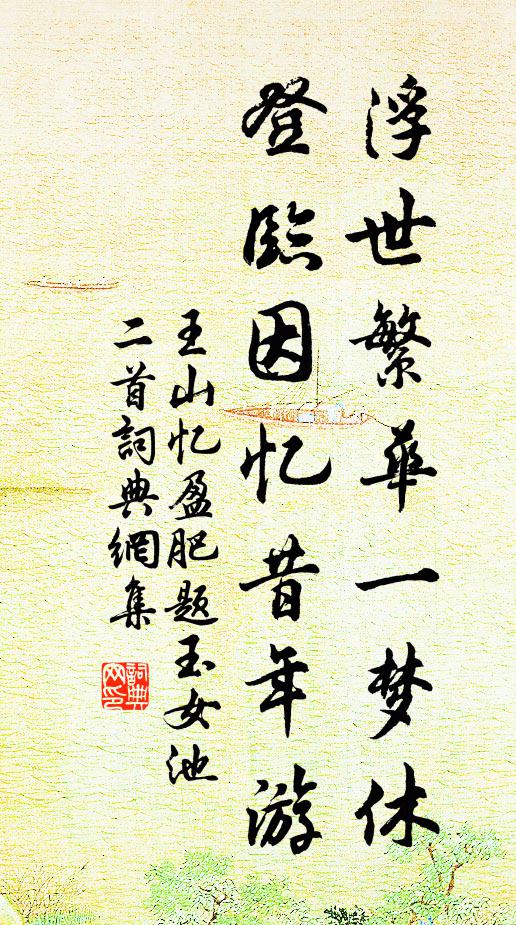 浮世繁華一梦休
登臨因忆昔年游
王山忆盈肥题玉女池
二首詞典網集
詞典网印